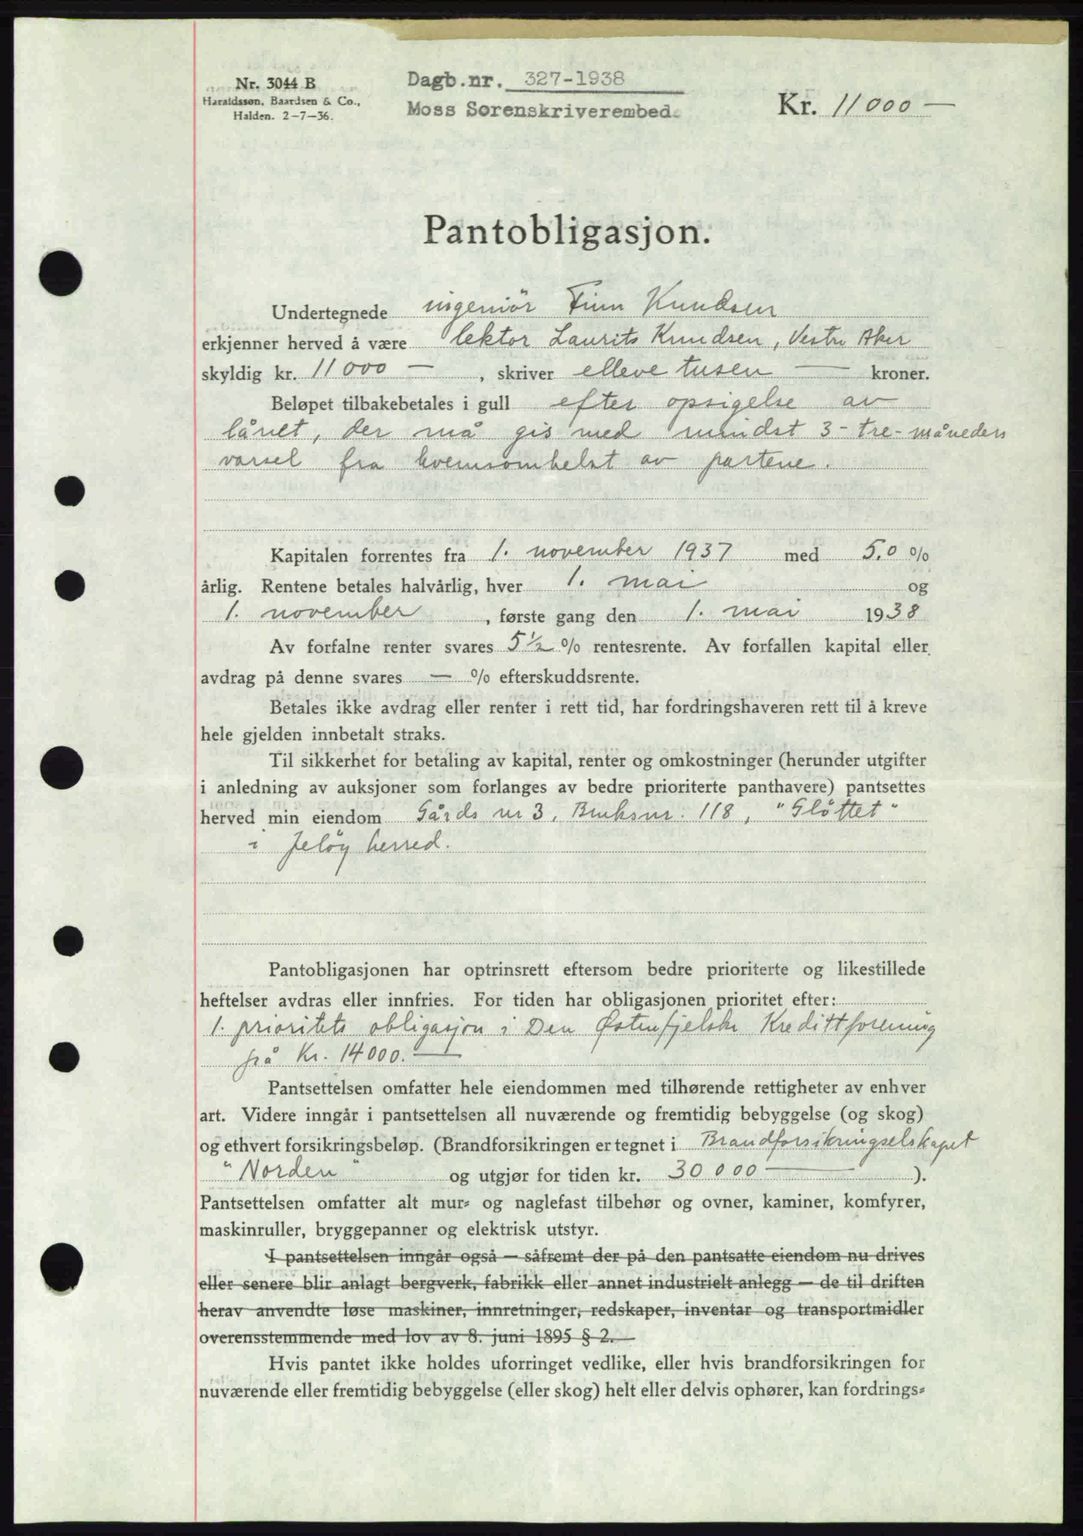 Nr. 3044 B
Haraldssøn, Baardsen & Co.,
Halden. 2-7-36.
Dagb.nr. 327-1938
Moss Sorenskriverembed.
Kr. 11000 —
Pantobligasjon.
Undertegnede ingeniör Finn Knudsen
erkjenner herved å være lektor Laurits Knudsen, Vestre Aker
skyldig kr. 11000 — , skriver elleve tusen — kroner.
Beløpet tilbakebetales i gull efter opsigelse av
lånet, der må gis med mindst 3- tre- måneders
varsel fra hvemsomhelst av partene.
Kapitalen forrentes fra 1. november 1937 med 5,0 %
årlig. Rentene betales halvårlig, hver 1. mai og
1. november , første gang den 1. mai 1938
Av forfalne renter svares 5 ½ % rentesrente. Av forfallen kapital eller
avdrag på denne svares — % efterskuddsrente.
Betales ikke avdrag eller renter i rett tid, har fordringshaveren rett til å kreve
hele gjelden innbetalt straks.
Til sikkerhet for betaling av kapital, renter og omkostninger (herunder utgifter
i anledning av auksjoner som forlanges av bedre prioriterte panthavere) pantsettes
herved min eiendom Gårds nr 3, Bruksnr. 118, "Gløttet"
i Jelöy herred.
Pantobligasjonen har optrinsrett eftersom bedre prioriterte og likestillede
heftelser avdras eller innfries. For tiden har obligasjonen prioritet efter:
1. prioritets obligasjon i Den Østenfjelske Kredittforening
på Kr. 14000. —
Pantsettelsen omfatter hele eiendommen med tilhørende rettigheter av enhver
art. Videre inngår i pantsettelsen all nuværende og fremtidig bebyggelse (og skog)
og ethvert forsikringsbeløp. (Brandforsikringen er tegnet i Brandforsikringselskapet
"Norden" og utgjør for tiden kr. 30000 — ).
Pantsettelsen omfatter alt mur= og naglefast tilbehør og ovner, kaminer, komfyrer,
maskinruller, bryggepanner og elektrisk utstyr.
I pantsettelsen inngår også — såfremt der på den pantsatte eiendom nu drives
eller senere blir anlagt bergverk, fabrikk eller annet industrielt anlegg — de til driften
herav anvendte løse maskiner, innretninger, redskaper, inventar og transportmidler
overensstemmende med lov av 8. juni 1895 § 2.
Hvis pantet ikke holdes uforringet vedlike, eller hvis brandforsikringen for
nuværende eller fremtidig bebyggelse (eller skog) helt eller delvis ophører, kan fordrings=